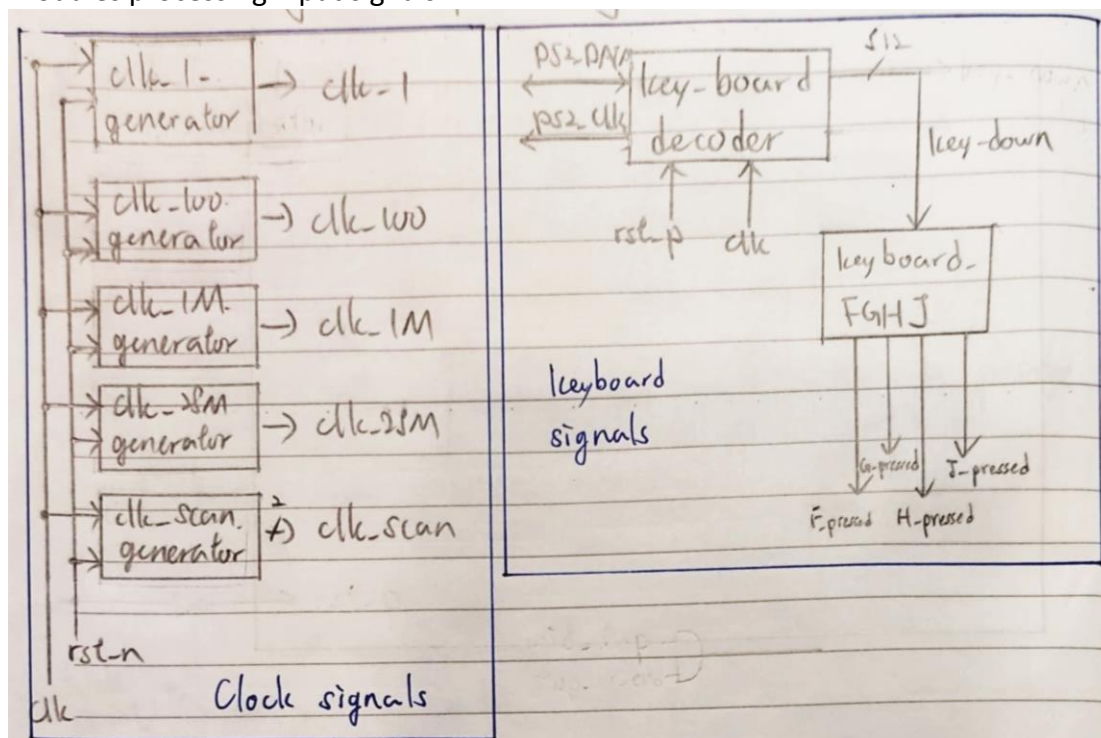 clk_1-
generator
clk-1
clk_100.
generator
clk_100
clk_1M.
generator
clk_1M
clk_25M
generator
clk_25M
clk_scan.
generator
2
clk_scan
rst_n
clk
Clock signals
PS2_DATA
PS2_clk
key-board
decoder
rst_p
clk
512
key-down
keyboard-
FGHJ
keyboard
signals
G-pressed
J-pressed
F-pressed
H-pressed